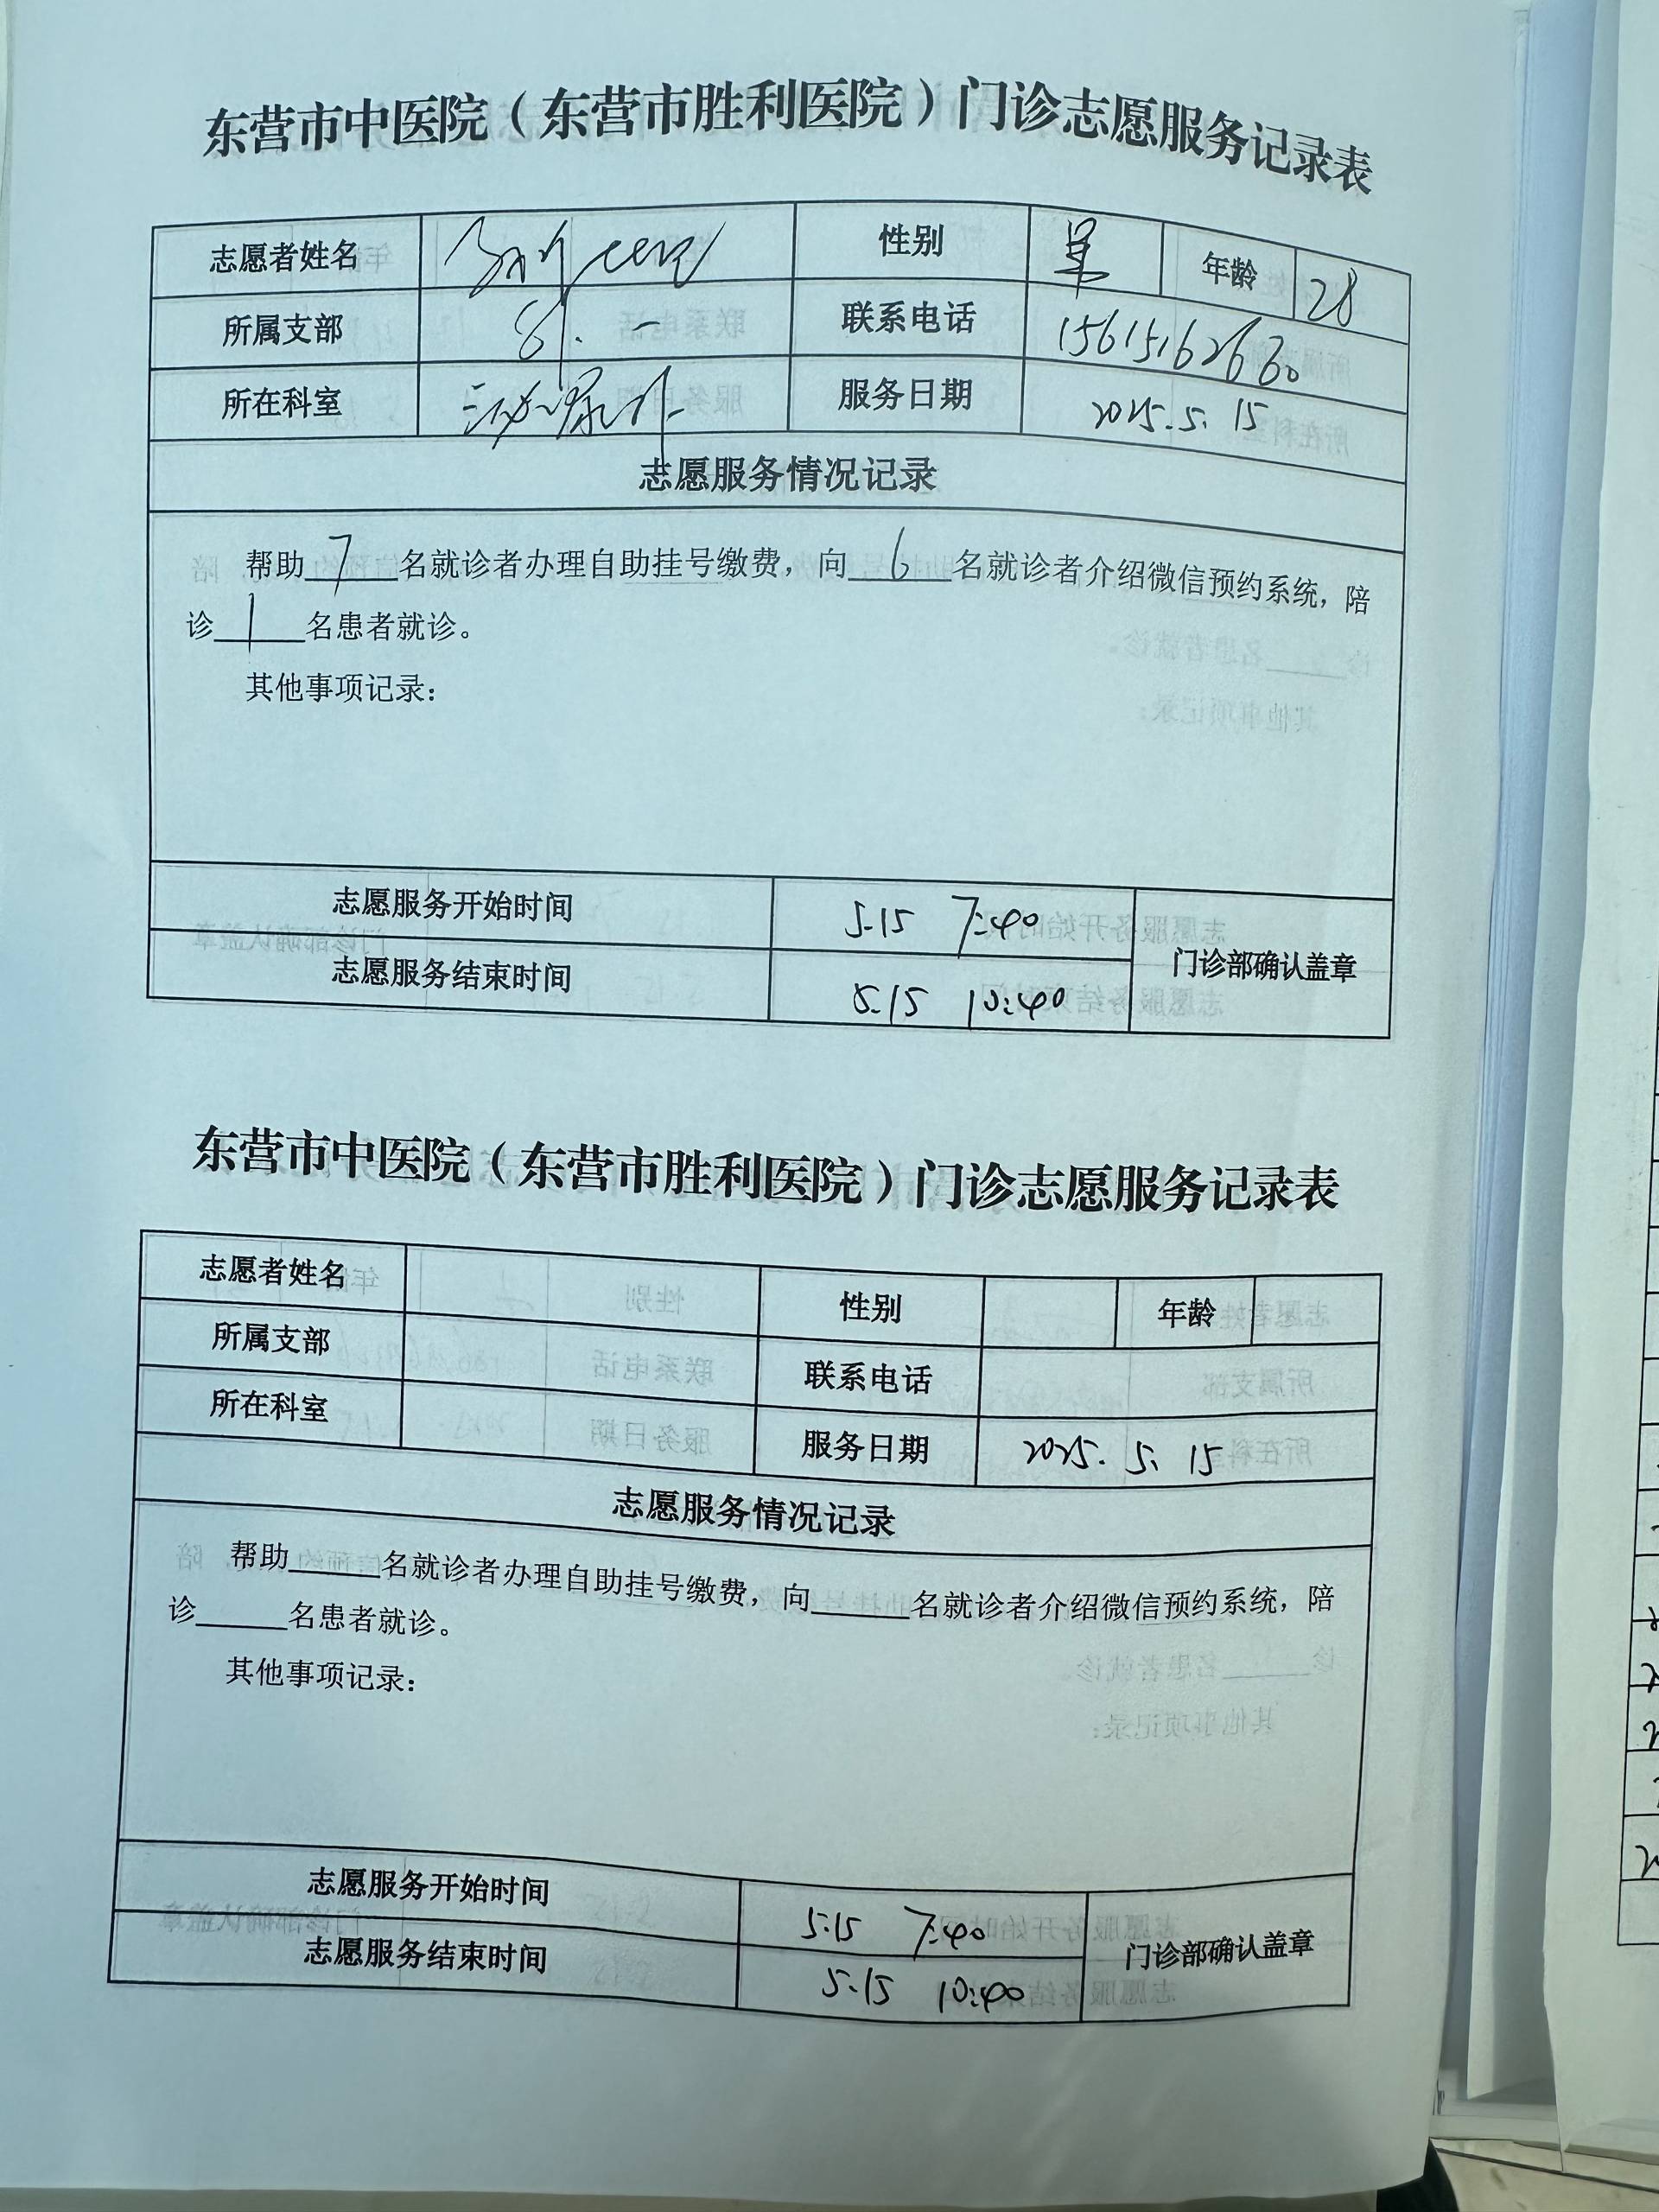 东营市中医院（东营市胜利医院）门诊志愿服务记录表
志愿者姓名 性别 男 年龄 28
所属支部 外一 联系电话 15615162660
所在科室 泌尿外 服务日期 2025.5.15
志愿服务情况记录
帮助 7 名就诊者办理自助挂号缴费，向 6 名就诊者介绍微信预约系统，陪
诊 1 名患者就诊。
其他事项记录：
志愿服务开始时间 5.15 7:40
门诊部确认盖章
志愿服务结束时间 5.15 10:40
东营市中医院（东营市胜利医院）门诊志愿服务记录表
志愿者姓名 性别 年龄
所属支部 联系电话
所在科室 服务日期 2025.5.15
志愿服务情况记录
帮助______名就诊者办理自助挂号缴费，向______名就诊者介绍微信预约系统，陪
诊______名患者就诊。
其他事项记录：
志愿服务开始时间 5.15 7:40
门诊部确认盖章
志愿服务结束时间 5.15 10:40